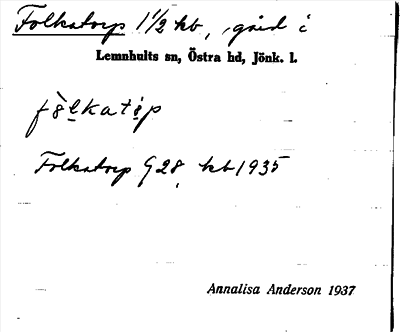 Folkatorp 1 1/2 kb, gård i
Lemnhults sn, Östra hd, Jönk. l.
Folkatorp G28, kb 1935
Annalisa Anderson 1937